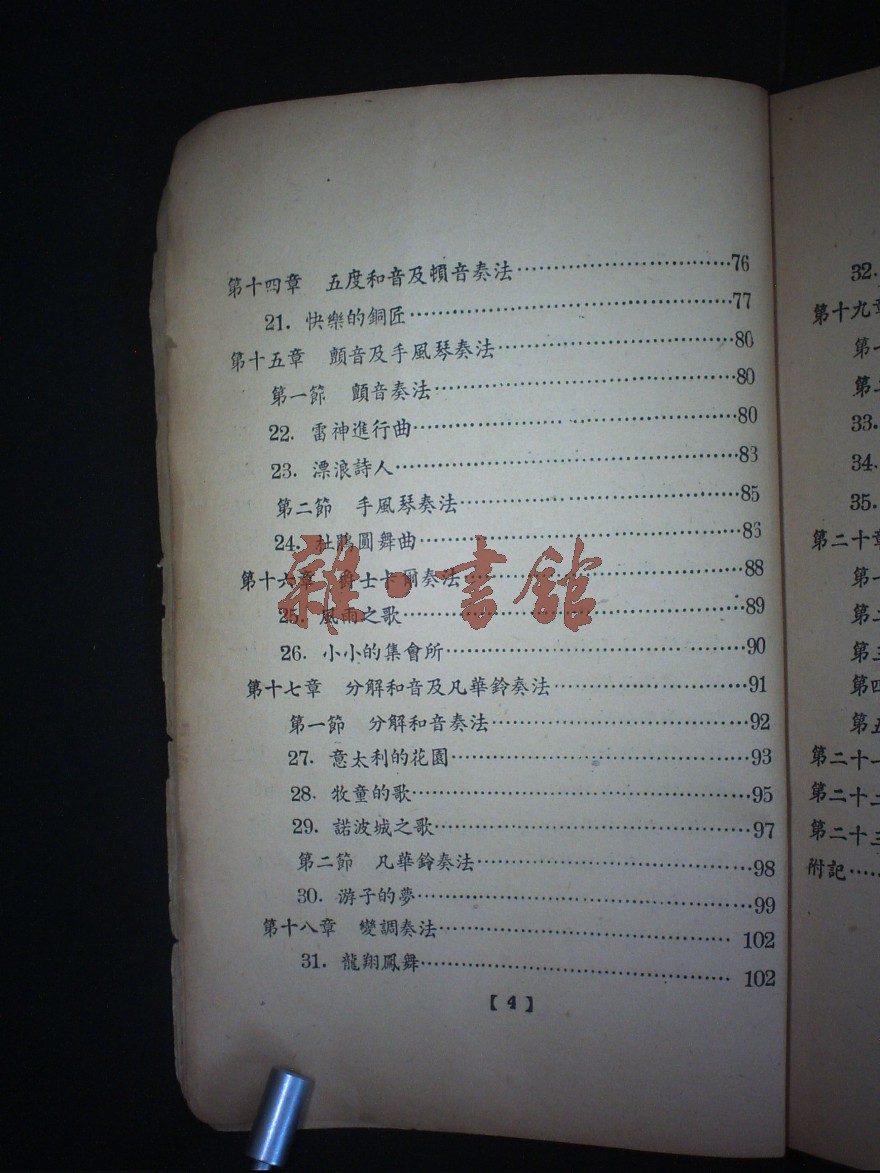 第十四章 五度和音及頓音奏法……76
21. 快樂的銅匠……77
第十五章 顫音及手風琴奏法……80
第一節 顫音奏法……80
22. 雷神進行曲……80
23. 漂浪詩人……83
第二節 手風琴奏法……85
24. 杜鵑圓舞曲……86
第十六章 爵士卡爾奏法……88
25. 風雨之歌……89
26. 小小的集會所……90
第十七章 分解和音及凡華鈴奏法……91
第一節 分解和音奏法……92
27. 意太利的花園……93
28. 牧童的歌……95
29. 諾波城之歌……97
第二節 凡華鈴奏法……98
30. 游子的夢……99
第十八章 變調奏法……102
31. 龍翔鳳舞……102
【4】
雜·書館
32.
第十九章
第一
第二
33.
34.
35.
第二十章
第一
第二
第三
第四
第五
第二十一
第二十二
第二十三
附記……